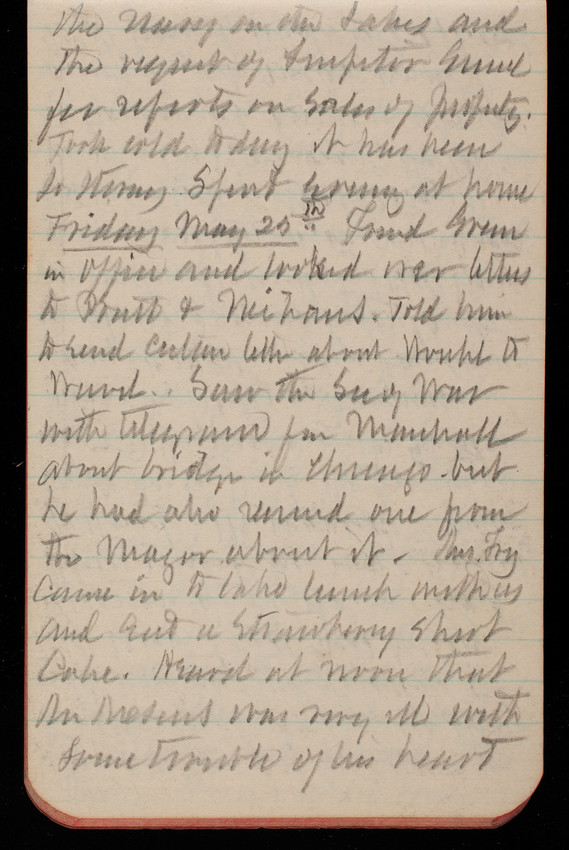 the Navy on the Lakes and
the request of Inspector
for reports on Sales of property.
Took cold today it has been
so stormy Spent Evening at home
Friday May 25th Found Green
in office and looked over letters
to Pratt & Neihaus. Told him
to send letter about to
Saw the Secy War
with telegram from Marshall
about bridge in Chicago but
he had also received one from
the Mayor about it. Fry
Came in to take lunch with us
and and a Strawberry Short
Cake. Heard at noon that
was very ill with
Some trouble of his heart